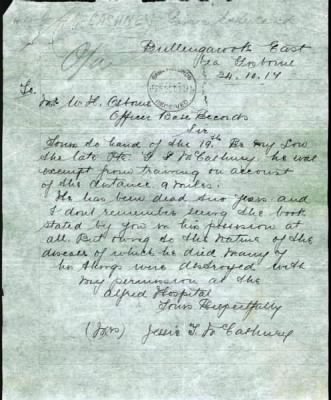 Bullengarook East
Via Gisborne
24.10.17
RECEIVED
To
W. H. Osborne
Officer Base Records
Sir
Yours to hand of the 19th Re my Son
the late Pte he was
exempt from training on account
of the distance 9 miles.
He has been dead two years and
I don't remember seeing the book
stated by you in his possession at
all. But owing to the nature of the
disease of which he died many of
his things were destroyed with
my permission at the
Alfred Hospital
Yours Respectfully
(Mrs) Jessie